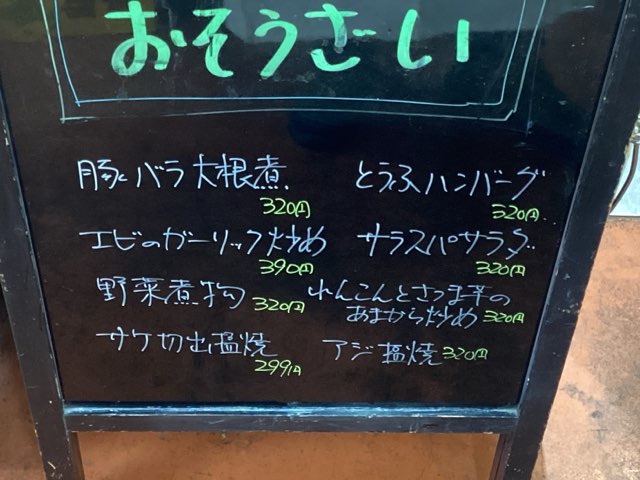 おそうざい
豚バラ大根煮
320円
エビのガーリック炒め
390円
野菜煮物 320円
サケ切出塩焼
299円
とうふハンバーグ
320円
サラスパサラダ
320円
れんこんとさつま芋の
あまから炒め 320円
アジ塩焼 320円